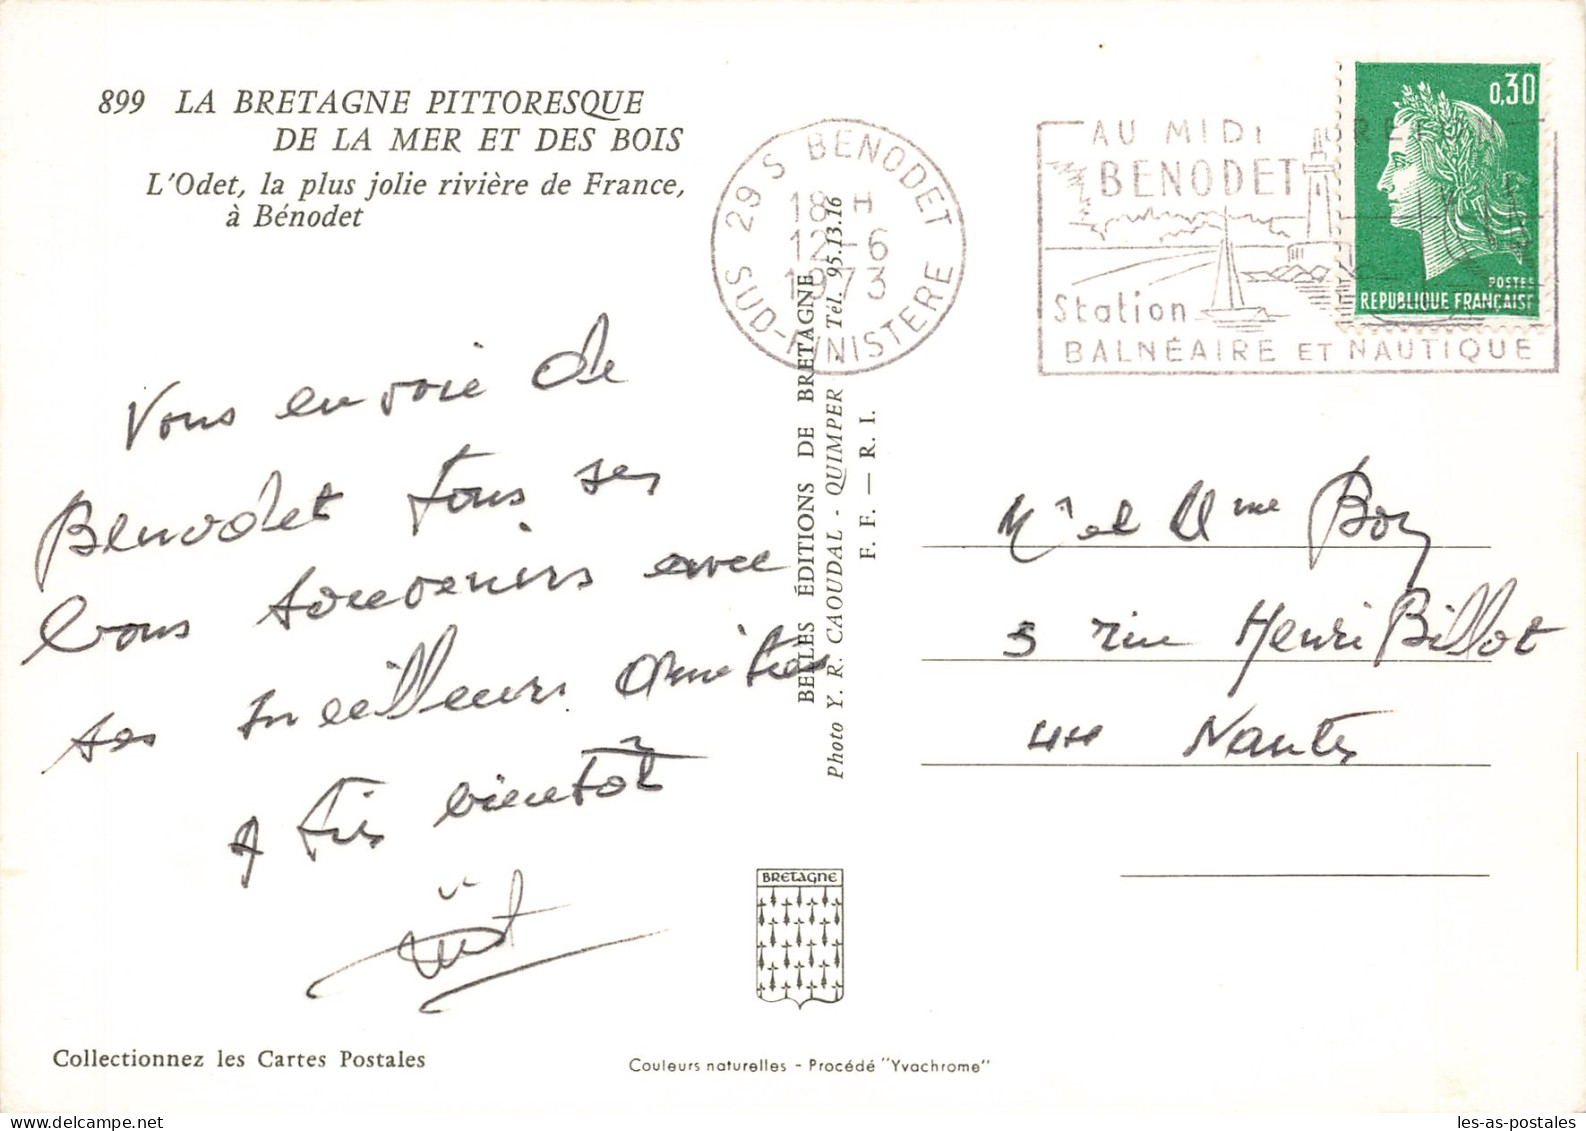 899 LA BRETAGNE PITTORESQUE
DE LA MER ET DES BOIS
L'Odet, la plus jolie rivière de France,
à Bénodet
29 S BENODET
18 H
12-6
1973
SUD-FINISTERE
AU MIDI
BENODET
Station
BALNÉAIRE ET NAUTIQUE
0,30
POSTES
REPUBLIQUE FRANÇAISE
Vous envoie de
Benodet tous ses
bons souvenirs avec
ses meilleurs amitiés
A très bientôt
BELLES ÉDITIONS DE BRETAGNE
Photo Y. R. CAOUDAL - QUIMPER - Tél. 95.13.16
F. F. — R. I.
Mr et Mme
3 rue Henri Billot
44 Nantes
BRETAGNE
Collectionnez les Cartes Postales
Couleurs naturelles - Procédé "Yvachrome"
les-as-postales